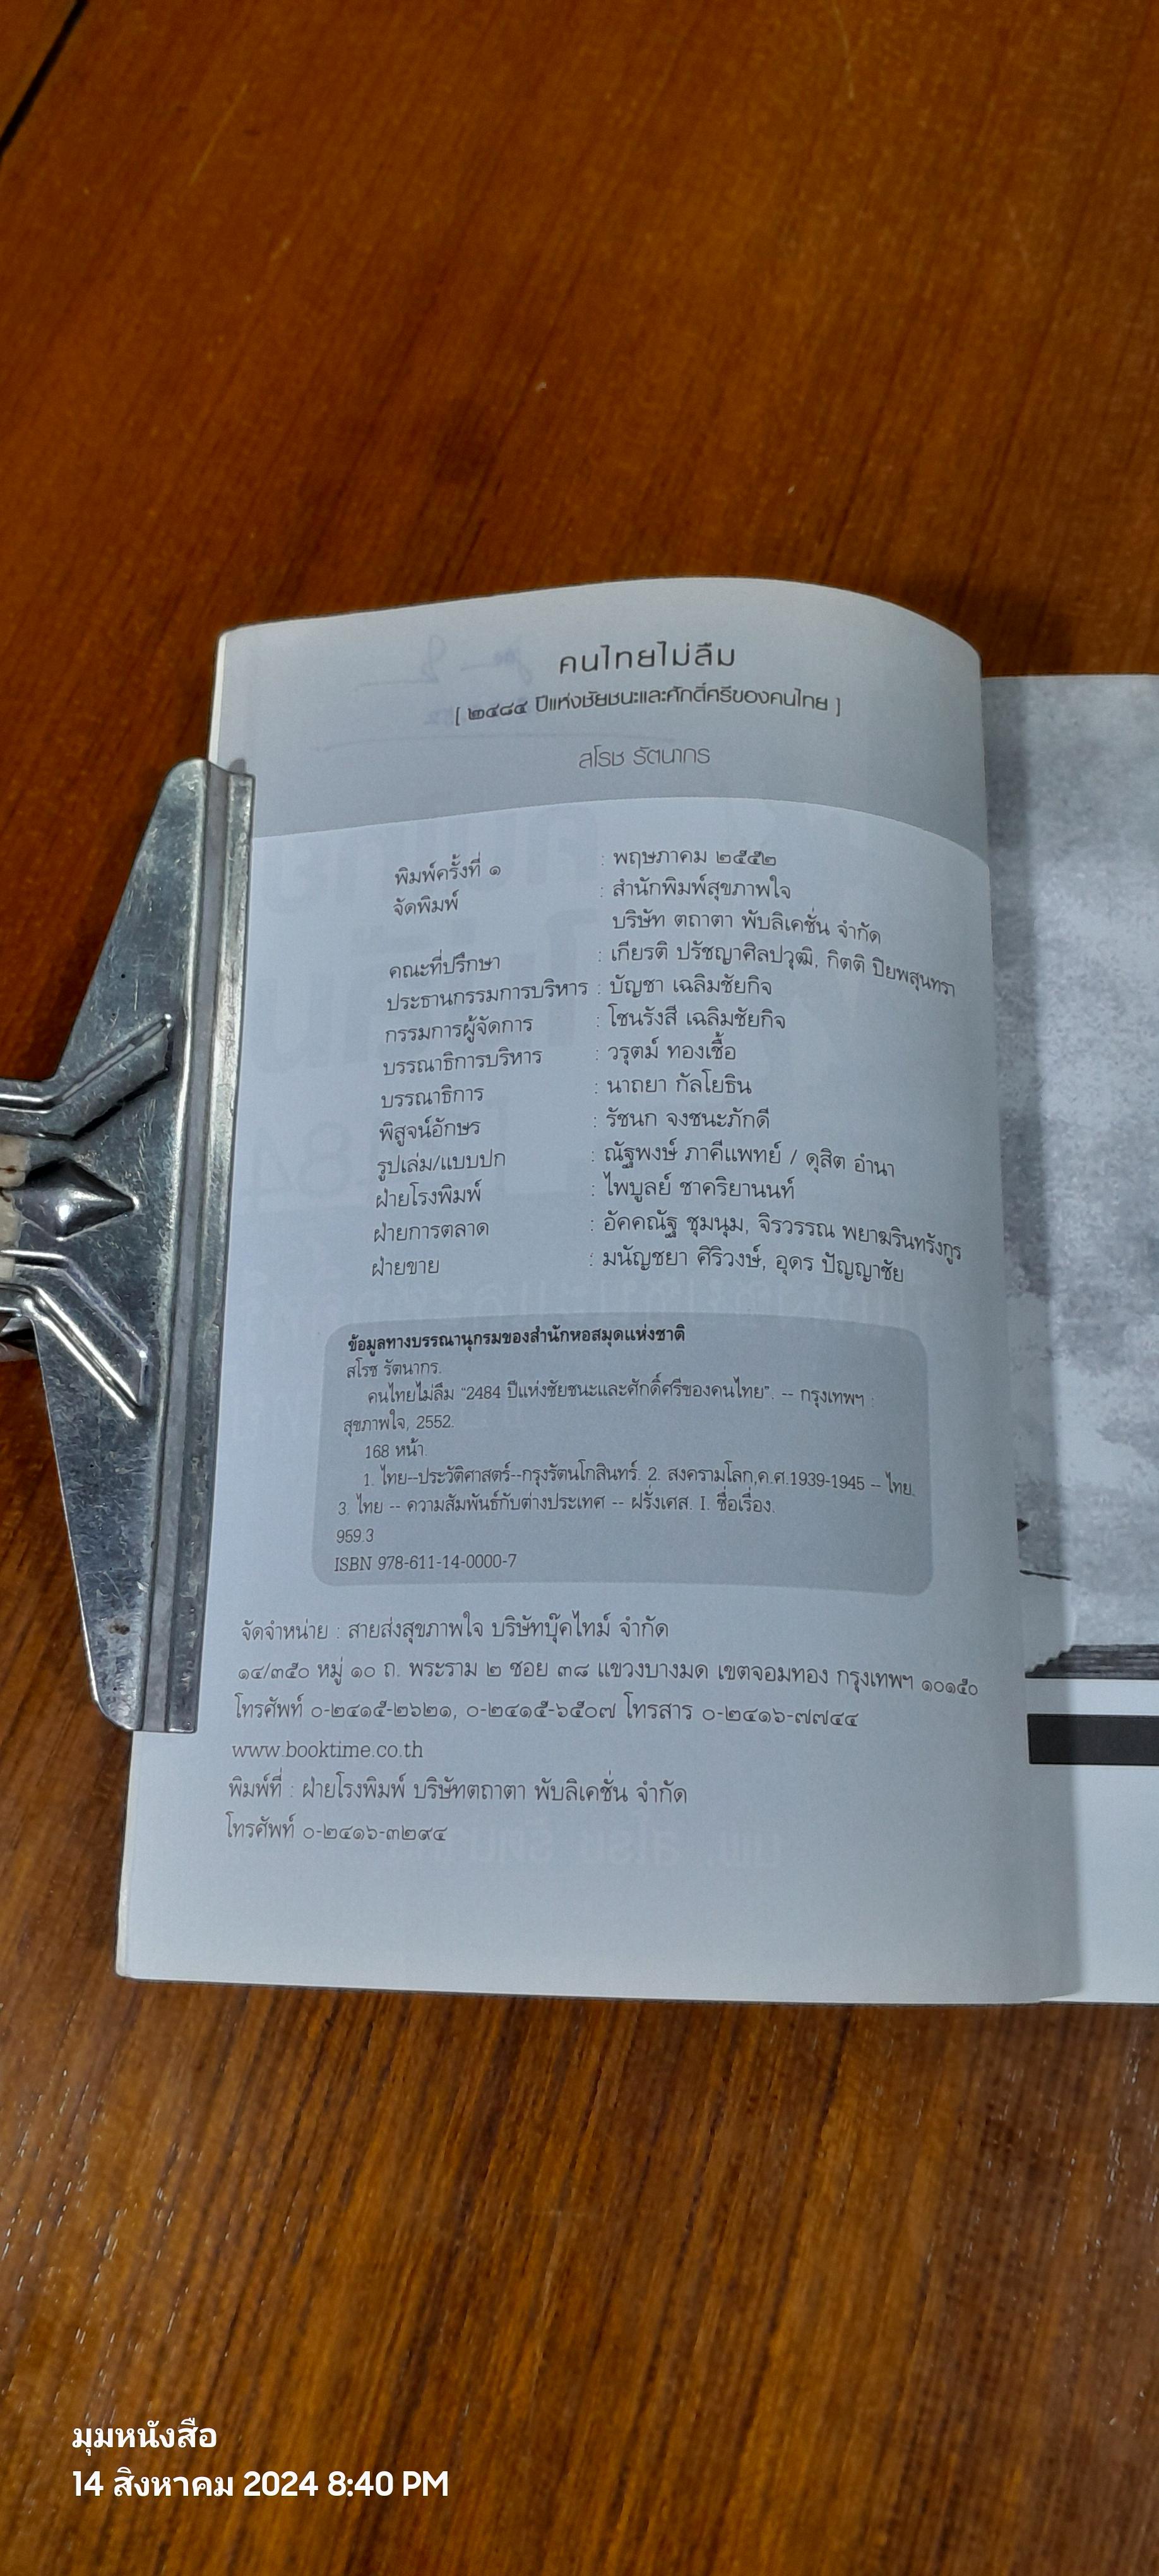 คนไทยไม่ลืม
[ ๒๔๘๔ ปีแห่งชัยชนะและศักดิ์ศรีของคนไทย ]
สโรช รัตนากร
พิมพ์ครั้งที่ ๑ : พฤษภาคม ๒๕๕๒
จัดพิมพ์ : สำนักพิมพ์สุขภาพใจ
บริษัท ตถาตา พับลิเคชั่น จำกัด
คณะที่ปรึกษา : เกียรติ ปรัชญาศิลปวุฒิ, กิตติ ปิยพสุนทรา
ประธานกรรมการบริหาร : บัญชา เฉลิมชัยกิจ
กรรมการผู้จัดการ : โชนรังสี เฉลิมชัยกิจ
บรรณาธิการบริหาร : วรุตม์ ทองเชื้อ
บรรณาธิการ : นาถยา กัลโยธิน
พิสูจน์อักษร : รัชนก จงชนะภักดี
รูปเล่ม/แบบปก : ณัฐพงษ์ ภาคีแพทย์ / ดุสิต อำนา
ฝ่ายโรงพิมพ์ : ไพบูลย์ ชาคริยานนท์
ฝ่ายการตลาด : อัคคณัฐ ชุมนุม, จิรวรรณ พยาฆรินทรังกูร
ฝ่ายขาย : มนัญชยา ศิริวงษ์, อุดร ปัญญาชัย
ข้อมูลทางบรรณานุกรมของสำนักหอสมุดแห่งชาติ
สโรช รัตนากร.
คนไทยไม่ลืม "2484 ปีแห่งชัยชนะและศักดิ์ศรีของคนไทย". -- กรุงเทพฯ :
สุขภาพใจ, 2552.
168 หน้า.
1. ไทย--ประวัติศาสตร์--กรุงรัตนโกสินทร์. 2. สงครามโลก,ค.ศ.1939-1945 -- ไทย.
3. ไทย -- ความสัมพันธ์กับต่างประเทศ -- ฝรั่งเศส. I. ชื่อเรื่อง.
959.3
ISBN 978-611-14-0000-7
จัดจำหน่าย : สายส่งสุขภาพใจ บริษัทบุ๊คไทม์ จำกัด
๑๔/๓๕๐ หมู่ ๑๐ ถ. พระราม ๒ ซอย ๓๘ แขวงบางมด เขตจอมทอง กรุงเทพฯ ๑๐๑๕๐
โทรศัพท์ ๐-๒๔๑๕-๒๖๒๑, ๐-๒๔๑๕-๖๕๐๗ โทรสาร ๐-๒๔๑๖-๗๗๔๔
www.booktime.co.th
พิมพ์ที่ : ฝ่ายโรงพิมพ์ บริษัทตถาตา พับลิเคชั่น จำกัด
โทรศัพท์ ๐-๒๔๑๖-๓๒๙๔
มุมหนังสือ
14 สิงหาคม 2024 8:40 PM